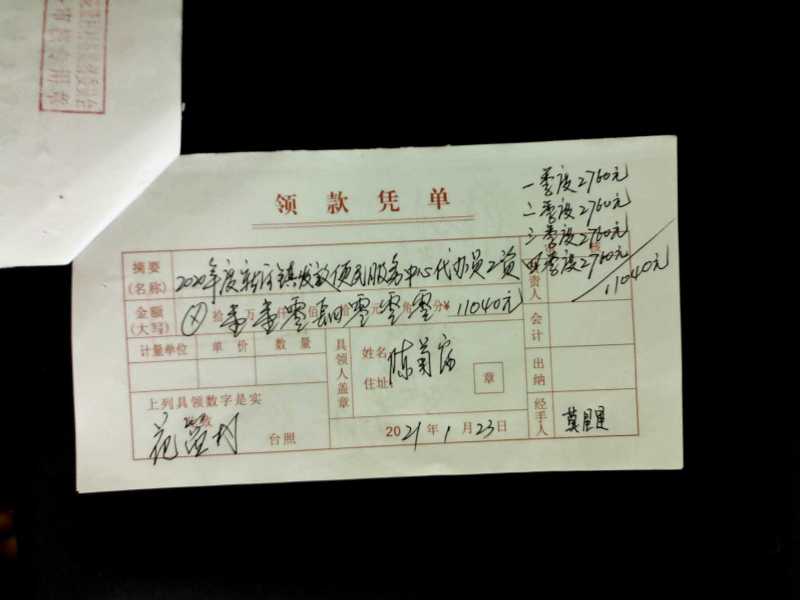 领款凭单
一季度2760元
二季度2760元
三季度2760元
四季度2760元
11040元
摘要
(名称)
2020年度新河镇发放便民服务中心代办员工资
负责人
金额
(大写)
ⓧ拾壹万壹仟零佰肆拾零元零角零分¥11040元
会计
计量单位 单价 数量
具领人盖章
姓名 陈菊
住址
章
出纳
上列具领数字是实
花园村
台照
2021年1月23日
经手人
莫星星